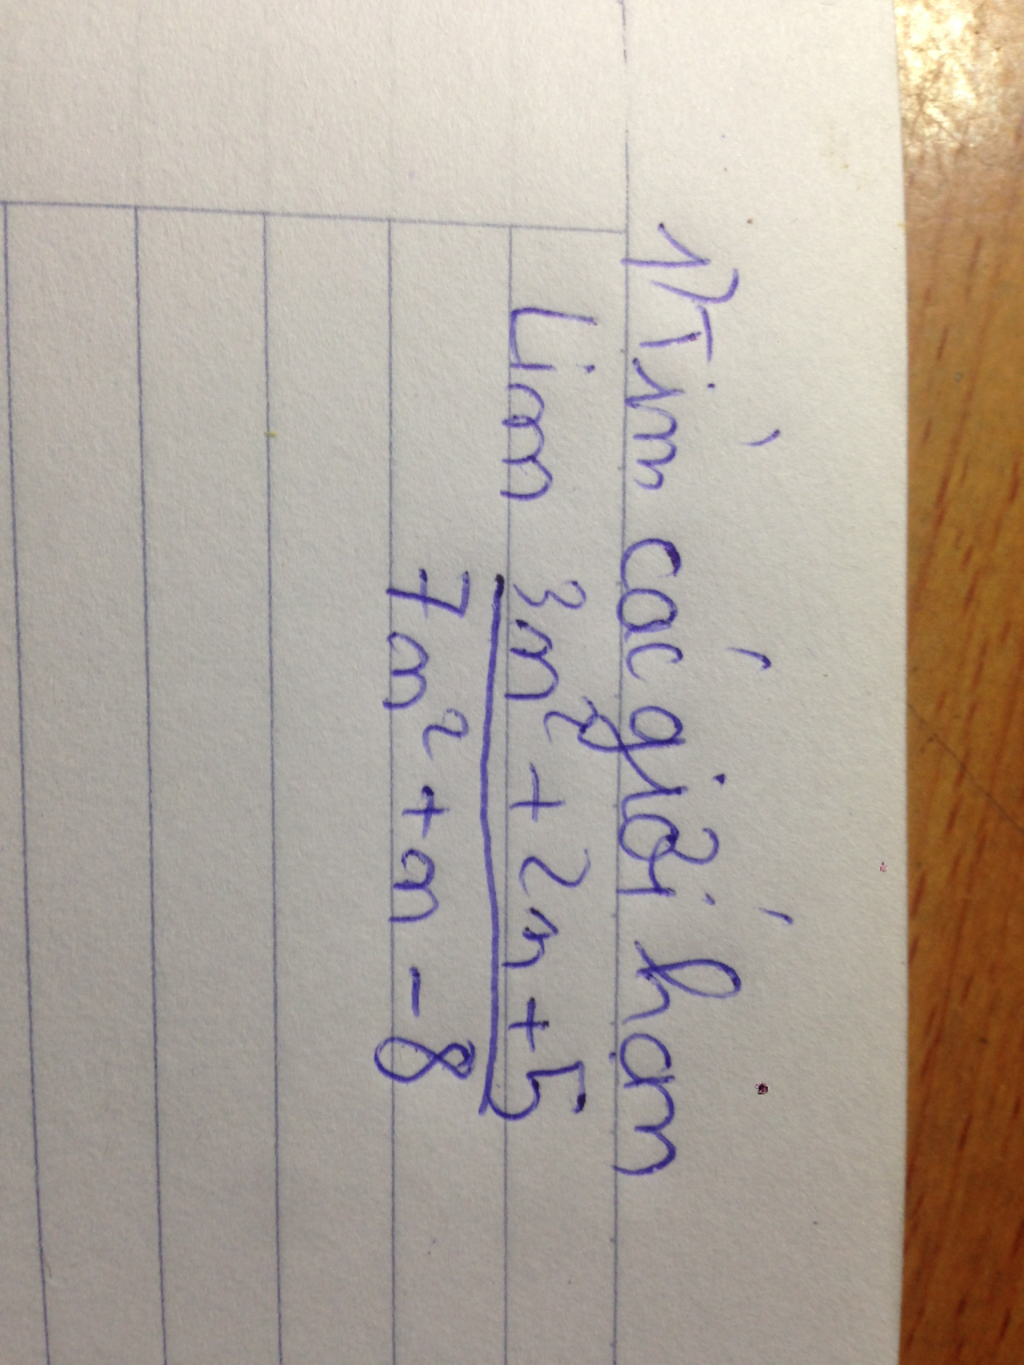 1) Tìm các giới han
Lim 3n² + 2n + 5
7n² + n - 8